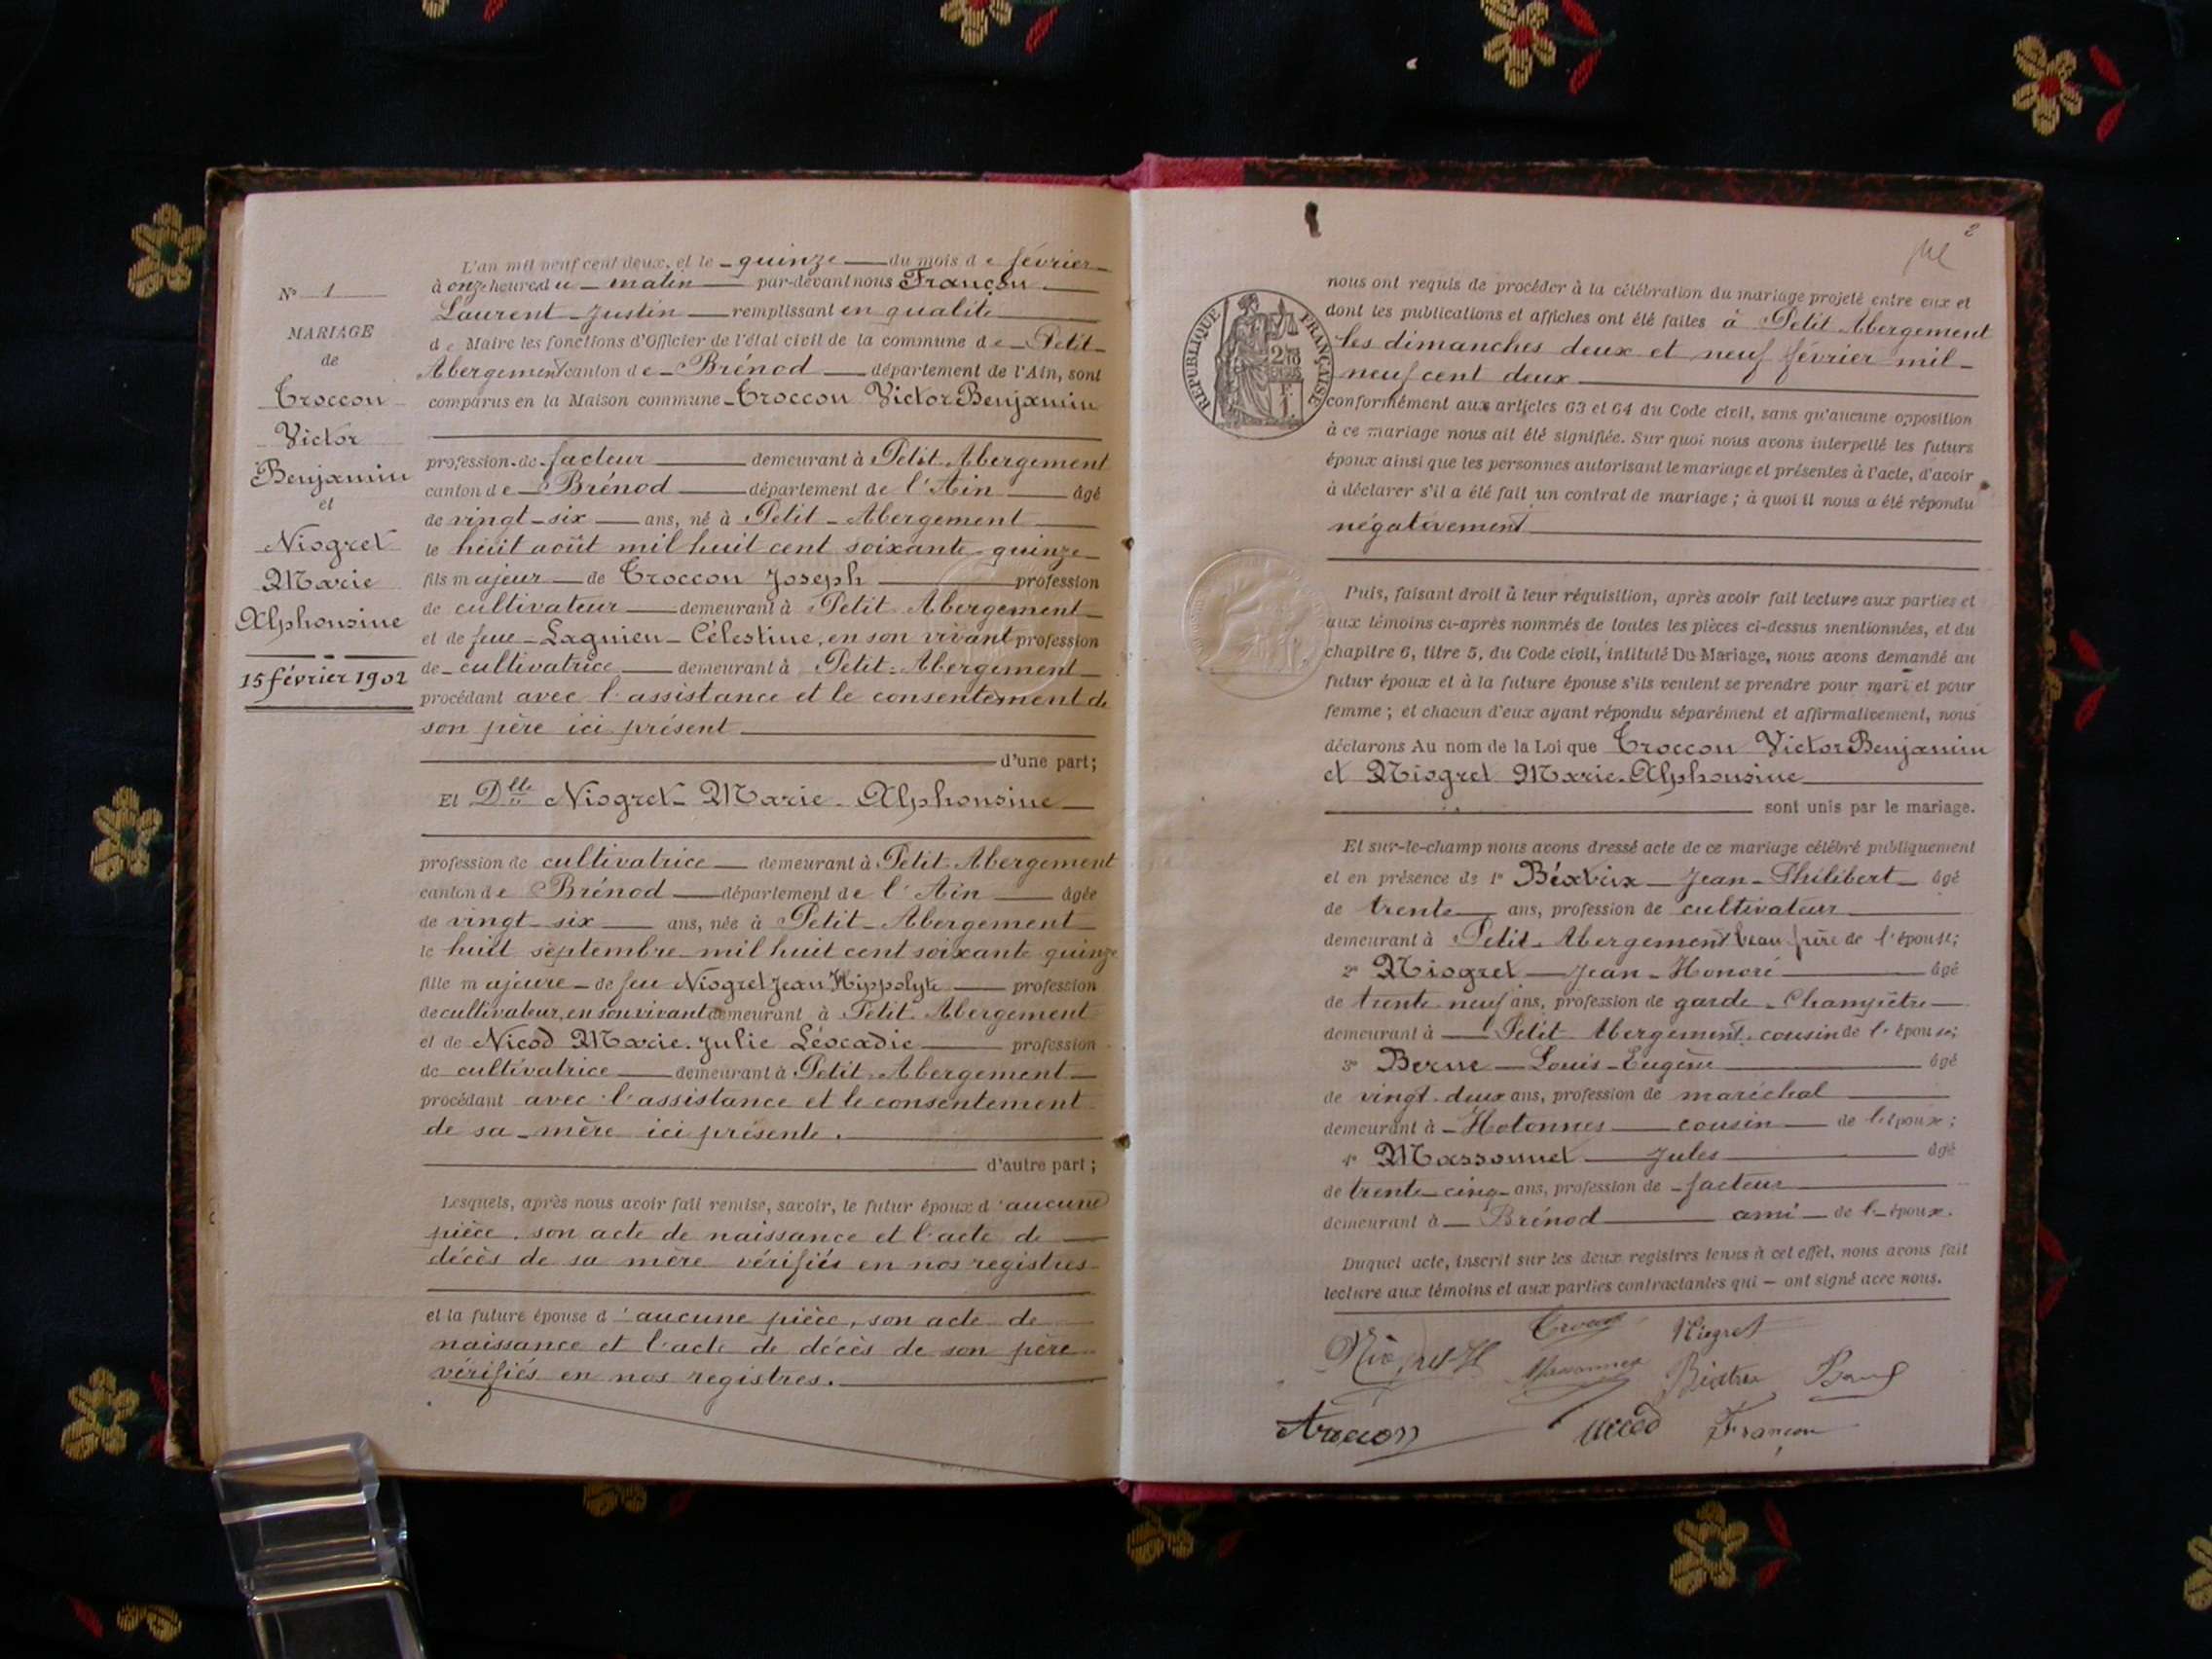 L'an mil neuf cent deux, et le quinze du mois de février
à onze heures du matin par-devant nous Françon
Laurent Justin remplissant en qualité
de Maire les fonctions d'Officier de l'état civil de la commune de Petit
Abergement canton de Brénod département de l'Ain, sont
comparus en la Maison commune Troccon Victor Benjamin
profession de facteur demeurant à Petit Abergement
canton de Brénod département de l'Ain âgé
de vingt-six ans, né à Petit-Abergement
le huit août mil huit cent soixante quinze
fils majeur de Troccon Joseph profession
de cultivateur demeurant à Petit Abergement
et de feue Lagnieu Célestine, en son vivant profession
de cultivatrice demeurant à Petit-Abergement
procédant avec l'assistance et le consentement de
son père ici présent
d'une part;
Et Dlle Niogret Marie Alphonsine
profession de cultivatrice demeurant à Petit Abergement
canton de Brénod département de l'Ain âgée
de vingt six ans, née à Petit-Abergement
le huit septembre mil huit cent soixante quinze
fille majeure de feu Niogret Jean Hippolyte profession
de cultivateur, en son vivant demeurant à Petit Abergement
et de Nicod Marie Julie Léocadie profession
de cultivatrice demeurant à Petit-Abergement
procédant avec l'assistance et le consentement
de sa mère ici présente.
d'autre part;
Lesquels, après nous avoir fait remise, savoir, le futur époux d'aucune
pièce, son acte de naissance et l'acte de
décès de sa mère vérifiés en nos registres
et la future épouse d'aucune pièce, son acte de
naissance et l'acte de décès de son père
vérifiés en nos registres.
N° 1
MARIAGE
de
Troccon
Victor
Benjamin
et
Niogret
Marie
Alphonsine
15 février 1902
2
RÉPUBLIQUE FRANÇAISE
nous ont requis de procéder à la célébration du mariage projeté entre eux et
dont les publications et affiches ont été faites à Petit Abergement
les dimanches deux et neuf février mil
neuf cent deux
conformément aux articles 63 et 64 du Code civil, sans qu'aucune opposition
à ce mariage nous ait été signifiée. Sur quoi nous avons interpellé les futurs
époux ainsi que les personnes autorisant le mariage et présentes à l'acte, d'avoir
à déclarer s'il a été fait un contrat de mariage; à quoi il nous a été répondu
négativement
Puis, faisant droit à leur réquisition, après avoir fait lecture aux parties et
aux témoins ci-après nommés de toutes les pièces ci-dessus mentionnées, et du
chapitre 6, titre 5, du Code civil, intitulé Du Mariage, nous avons demandé au
futur époux et à la future épouse s'ils veulent se prendre pour mari et pour
femme; et chacun d'eux ayant répondu séparément et affirmativement, nous
déclarons Au nom de la Loi que Troccon Victor Benjamin
et Niogret Marie Alphonsine
sont unis par le mariage.
Et sur-le-champ nous avons dressé acte de ce mariage célébré publiquement
et en présence de 1° Jean-Philibert âgé
de trente ans, profession de cultivateur
demeurant à Petit-Abergement beau frère de l'épouse;
2° Niogret Jean-Honoré âgé
de trente neuf ans, profession de garde-Champêtre
demeurant à Petit Abergement cousin de l'épouse;
3° Berne Louis-Eugène âgé
de vingt-deux ans, profession de maréchal
demeurant à Hotonnes cousin de l'époux;
4° Massonnet Jules âgé
de trente-cinq ans, profession de facteur
demeurant à Brénod ami de l'époux.
Duquel acte, inscrit sur les deux registres tenus à cet effet, nous avons fait
lecture aux témoins et aux parties contractantes qui ont signé avec nous.
Niogret
Troccon
Françon